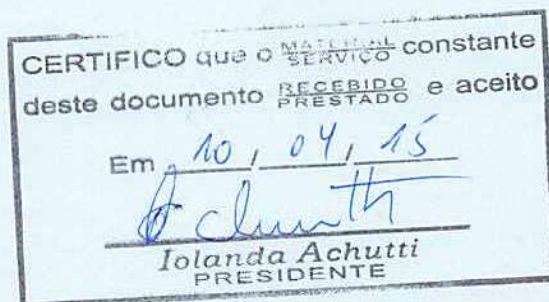 CERTIFICO que o MATERIAL SERVIÇO constante
deste documento RECEBIDO PRESTADO e aceito
Em 10, 04, 15
Achutti
Iolanda Achutti
PRESIDENTE